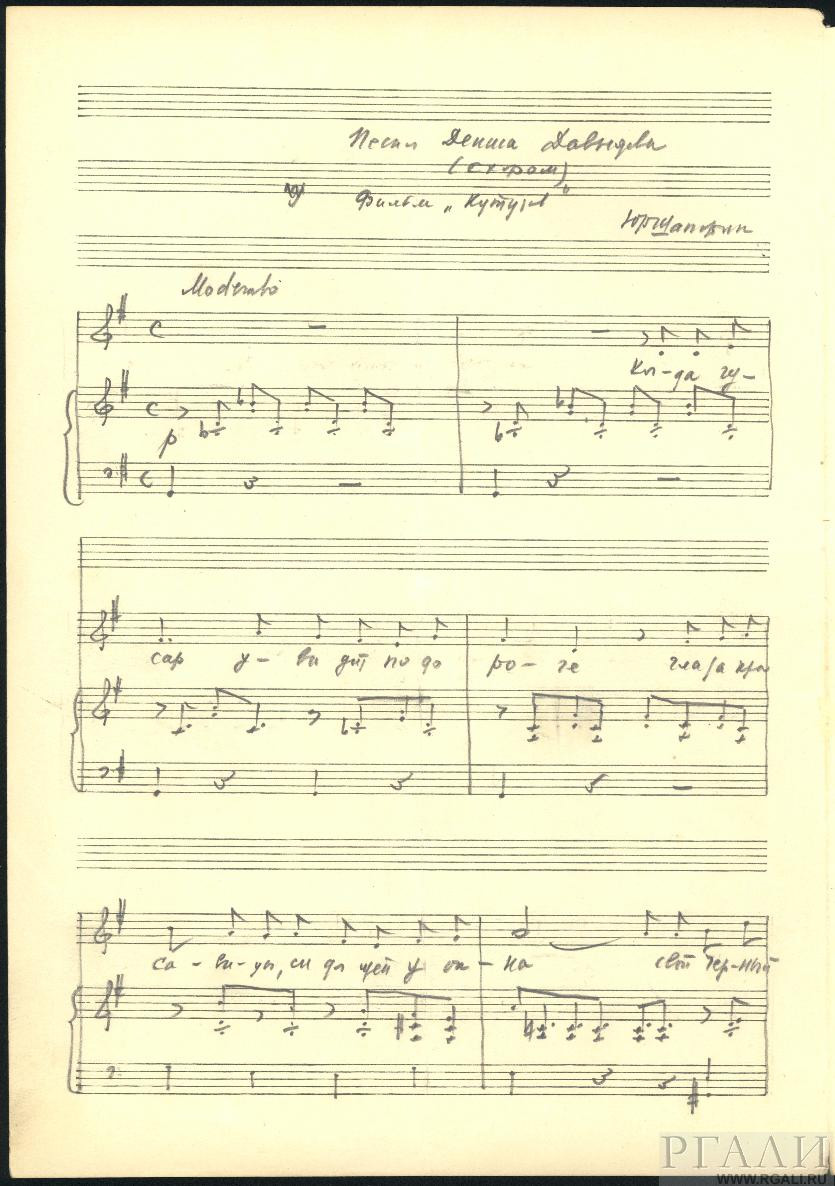 Песня Дениса Давыдова
(с хором)
Фильм „Кутузов"
Юр Шапорин
Moderato
Ко-гда гу-
p
сар у-ви дит по до ро-ге глаза кра
са-ви-цы, си дя щей у ок-на свой чер-ный
РГАЛИ
WWW.RGALI.RU